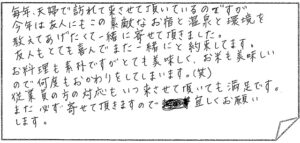 毎年、夫婦で訪れて来させて頂いているのですが
今年は友人にもこの素敵なお宿と温泉と環境を
教えてあげたくて一緒に寄せて頂きました。
友人もとても喜んでまた一緒にと約束してます。
お料理も素朴ですがとても美味しく、お米も美味しい
ので何度もおかわりをしてしまいます。(笑)
従業員の方の対応もいつ来させて頂いても満足です。
また必ず寄せて頂きますので 宜しくお願い
します。